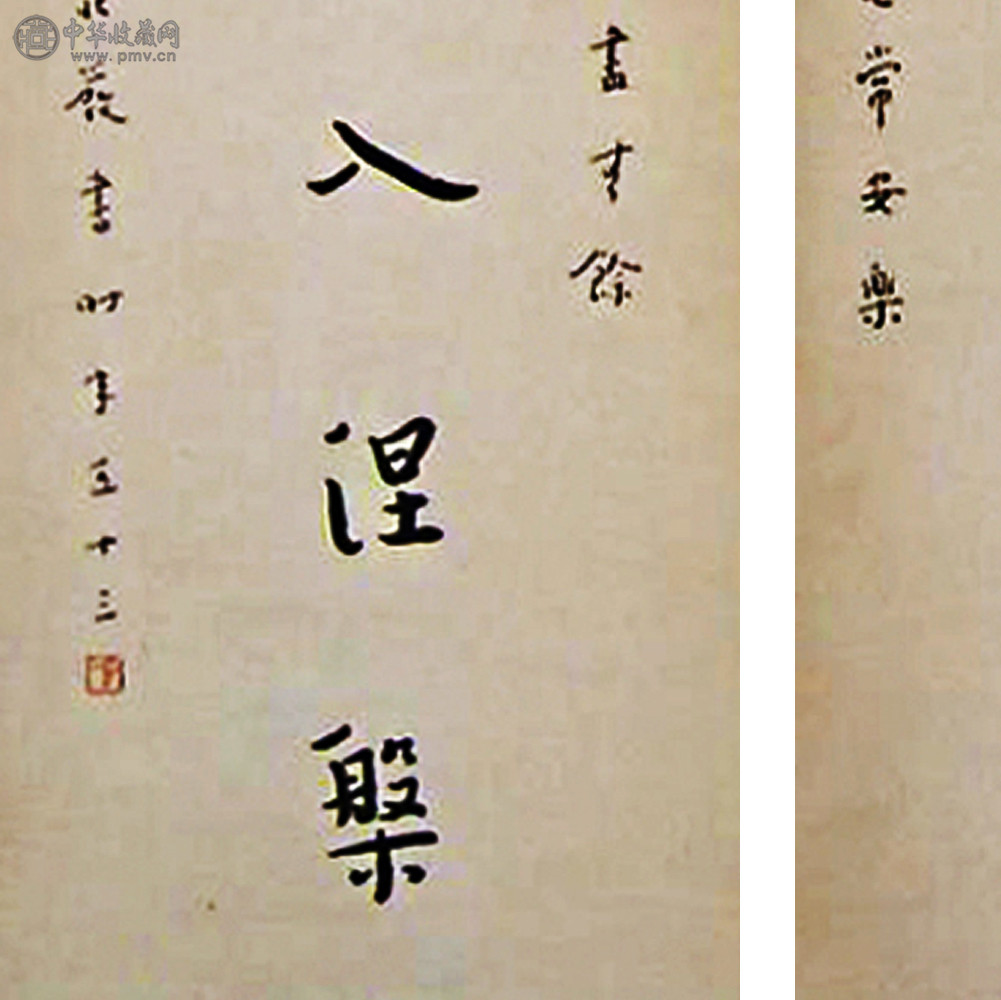 常安樂
盡無餘
入涅槃
嚴書時年五十三
中华收藏网
www.pmv.cn